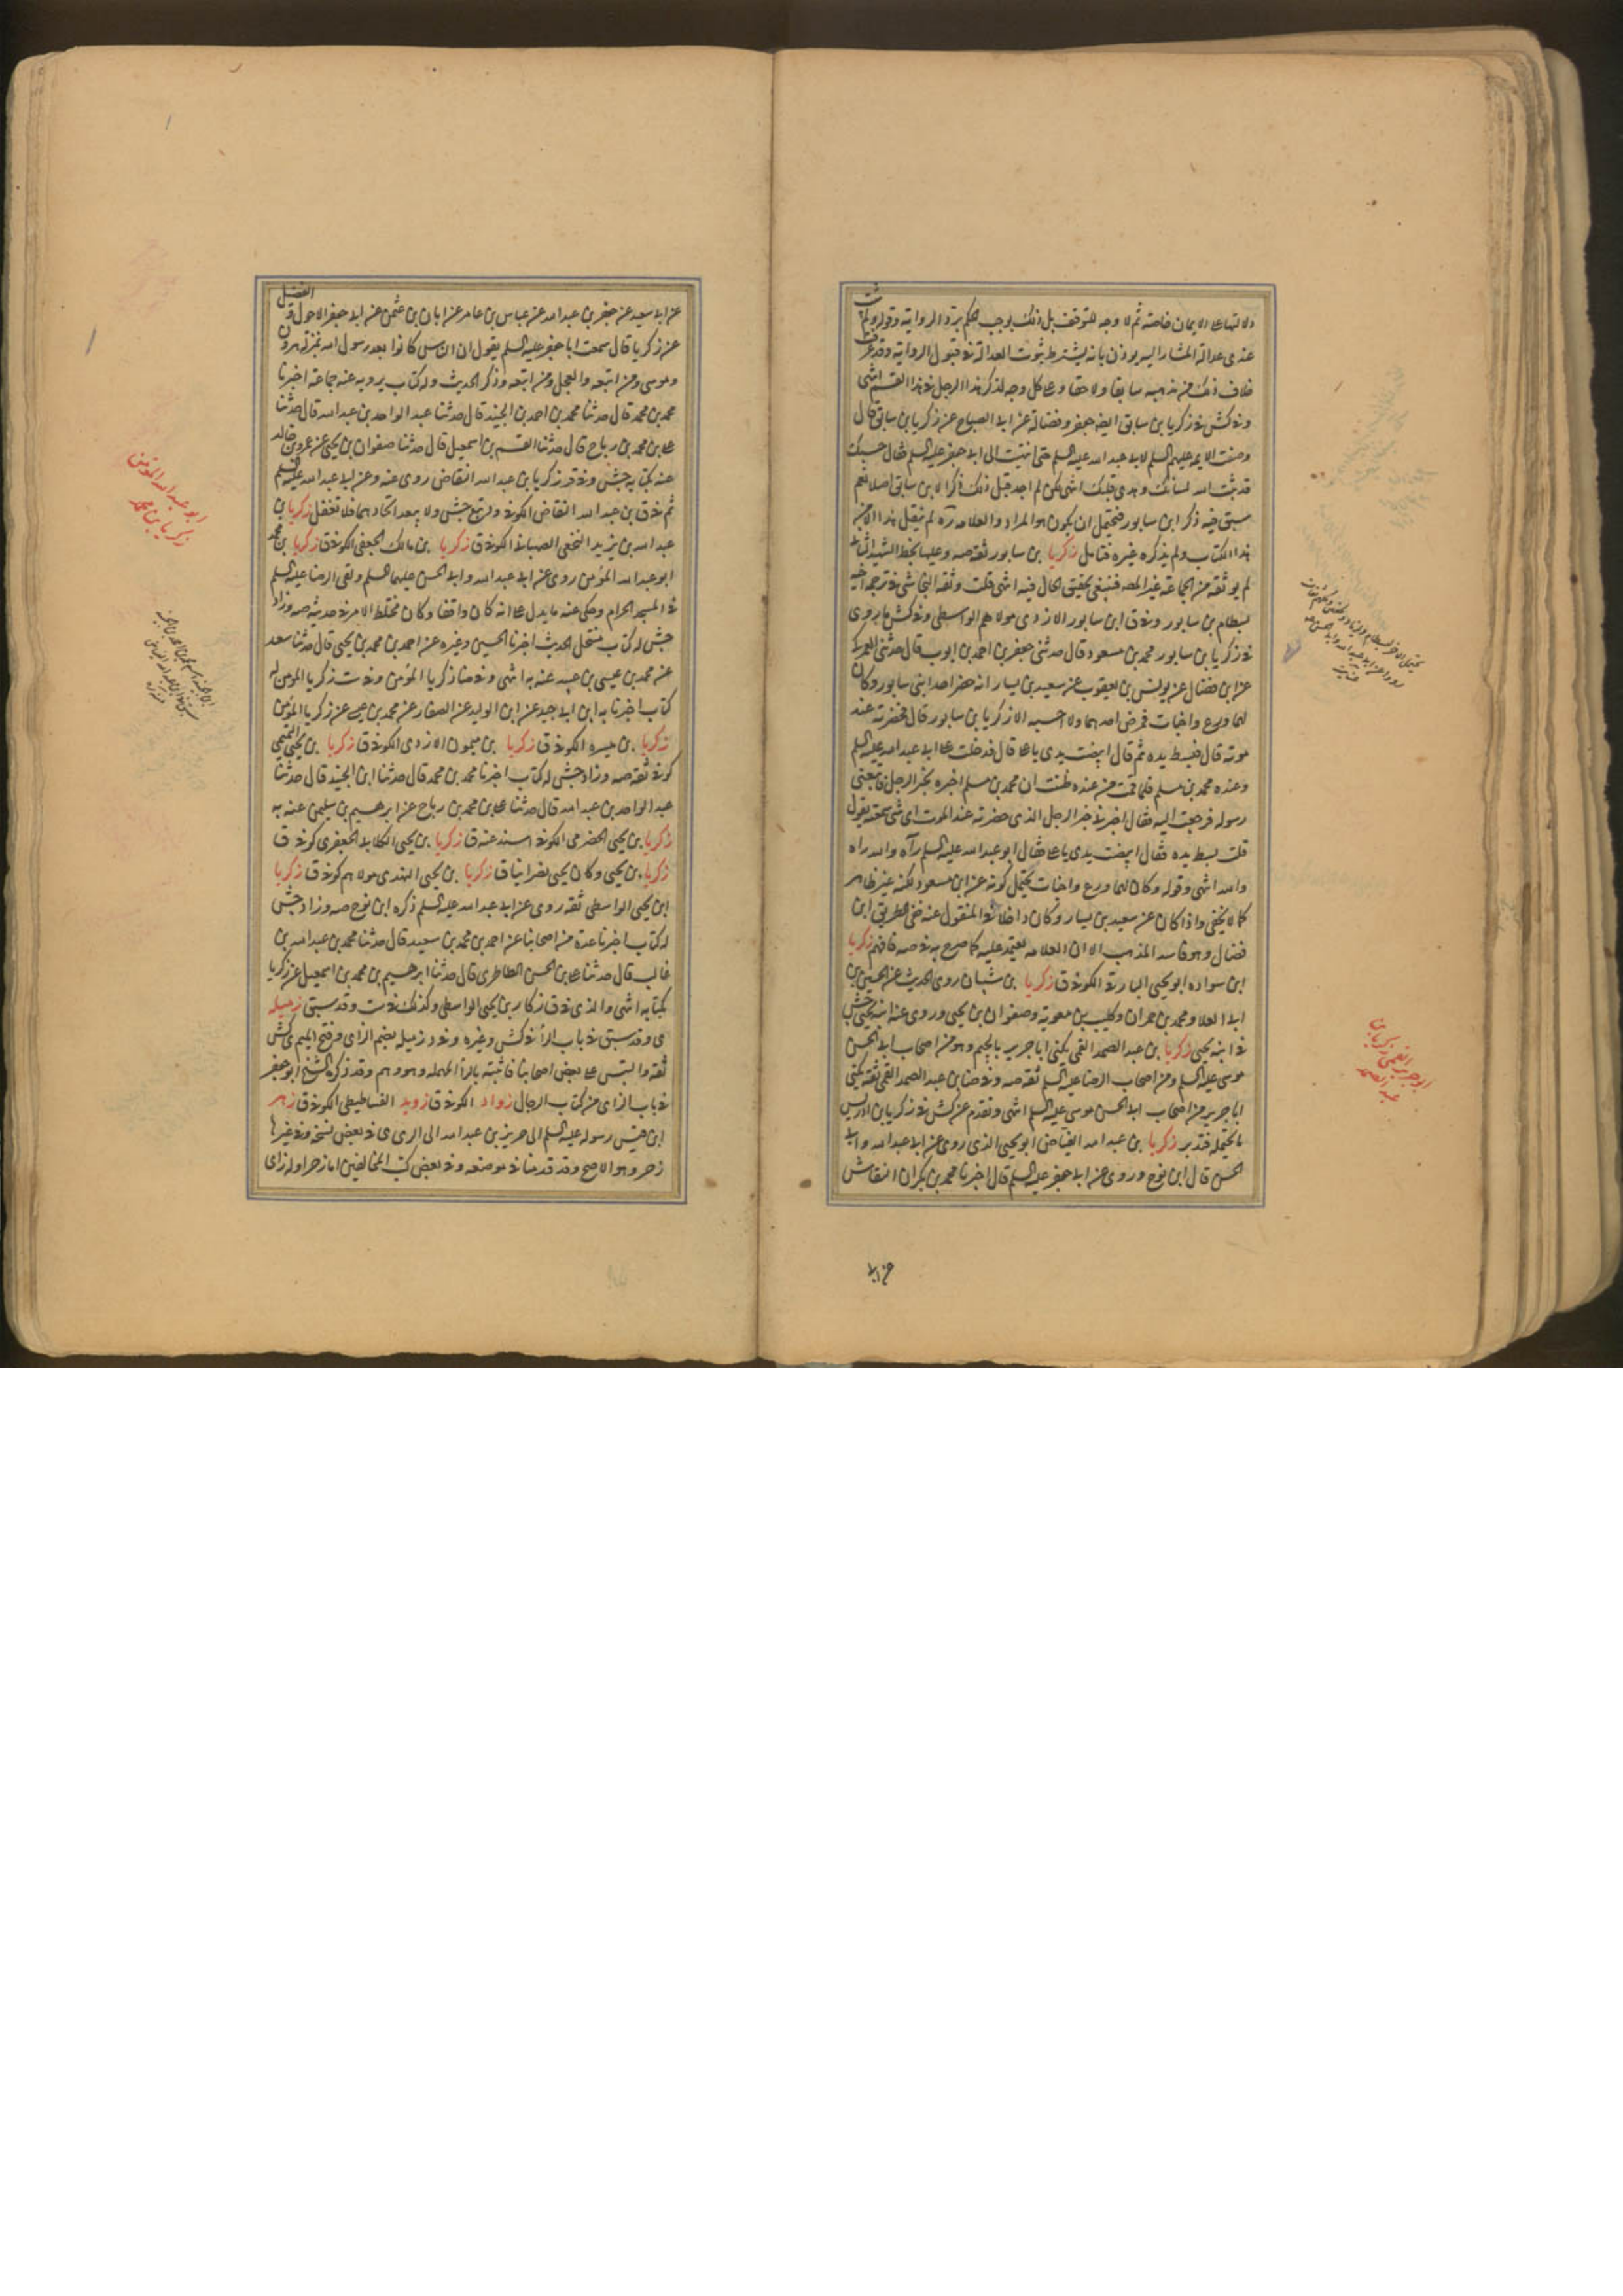 دلالتها على الايمان خاصة ثم لا وجه للتوقف بل ذلك يوجب الحكم برد الرواية وقوله ولم يثبت
عندى عدالة المشار اليه يوذن بانه يشترط ثبوت العدالة فى قبول الرواية وقد عرفت
خلاف ذلك من مذهبه سابقا ولاحقا وعلى كل وجه لذكر هذا الرجل فى هذا القسم انتهى
وفى كش فى زكريا بن سابق ابو جعفر وفضالة عن ابى الصباح عن زكريا بن سابق قال
وصفت الايمه عليهم السلم لابى عبد الله عليه السلم حتى انتهيت الى ابى جعفر عليه السلم فقال حسبك
قد ثبت الله لسانك وهدى قلبك انتهى لكن لم اجد قبل ذلك ذكرا لابن سابق اصلا نعم
سبق فيه ذكر ابن سابور فيحتمل ان يكون هو المراد والعلامه ره لم ينقل هذا الا من
هذا الكتاب ولم يذكره غيره فتامل زكريا بن سابور ثقة صه وعليها بخط الشهيد الثانى
لم يوثقه من الجماعة غير المصه فينبغى تحقيق الحال فيه انتهى قلت وثقه النجاشى فى ترجمة اخيه
بسطام بن سابور وفى ق ابن سابور الازدى مولاهم الواسطى وفى كش ما يروى
فى زكريا بن سابور محمد بن مسعود قال حدثنى جعفر بن احمد بن ايوب قال حدثنى العمركى
عن ابن فضال عن يونس بن يعقوب عن سعيد بن يسار انه حضر احد ابنى سابور وكان
لهما ورع واخبات فمرض احدهما ولا احسبه الا زكريا بن سابور قال فحضرته عند
موته قال فبسط يده ثم قال ابيضت يدى يا على قال فدخلت على ابى عبد الله عليه السلم
وعنده محمد بن مسلم فلما قمت من عنده ظننت ان محمد بن مسلم اخبره بخبر الرجل فاتبعنى
رسوله فرجعت اليه فقال اخبرنى خبر الرجل الذى حضرته عند الموت اى شى سمعته يقول
قلت بسط يده فقال ابيضت يدى يا على فقال ابو عبد الله عليه السلم رآه والله راه
والله انتهى وقوله وكان لهما ورع واخبات يحتمل كونه عن ابن مسعود لكنه غير ظاهر
كما لا يخفى واذا كان عن سعيد بن يسار وكان داخلا فى المنقول عنه ففى الطريق ابن
فضال وهو فاسد المذهب الا ان العلامه يعتمد عليه كما صرح به فى صه فافهم زكريا
ابن سواده ابو يحيى البارقى الكوفى ق زكريا بن شيبان روى الحديث عن الحسين بن
ابى العلا ومحمد بن حمران وكليب بن معوية وصفوان بن يحيى وروى عنه ابنه يحيى جش
فى ابنه يحيى زكريا بن عبد الصمد القمى يكنى ابا جرير بالجيم وهو من اصحاب ابى الحسن
موسى عليه السلم ومن اصحاب الرضا عليه السلم ثقة صه وفى ضا بن عبد الصمد القمى ثقة يكنى
ابا جرير من اصحاب ابى الحسن موسى عليه السلم انتهى وتقدم عن كش فى زكريا بن ادريس
ما يحتمله فتدبر زكريا بن عبد الله الفياض ابو يحيى الذى روى عن ابى عبد الله وابى
الحسن قال ابن نوح وروى عن ابى جعفر عليه السلم قال اخبرنا محمد بن بكران النقاش
عن ابى
ابو جرير القمى زكريا بن
عبد الصمد
عن ابى سعيد عن جعفر بن عبد الله عن عباس بن عامر عن ابان بن عثمن عن ابى جعفر الاحول والفضيل
عن زكريا قال سمعت ابا جعفر عليه السلم يقول ان الناس كانوا بعد رسول الله بمنزلة هرون
وموسى ومن اتبعه والعجل ومن اتبعه وذكر الحديث وله كتاب يرويه عنه جماعة اخبرنا
محمد بن محمد قال حدثنا محمد بن احمد بن الجنيد قال حدثنا عبد الواحد بن عبد الله قال حدثنا
على بن محمد بن رباح قال حدثنا القسم بن اسمعيل قال حدثنا صفوان بن يحيى عن عمرو بن خالد
عنه بكتابه جش وفى قر زكريا بن عبد الله النقاض روى عنه وعن ابى عبد الله عليه السلم
ثم فى ق بن عبد الله النقاض الكوفى ولم يتبع جش ولا يبعد اتحادهما فلا تغفل زكريا بن
عبد الله بن يزيد النخعى الصهبانى الكوفى ق زكريا بن مالك الجعفى الكوفى ق زكريا بن محمد
ابو عبد الله المؤمن روى عن ابى عبد الله وابى الحسن عليهما السلم ولقى الرضا عليه السلم
فى المسجد الحرام وحكى عنه ما يدل على انه كان واقفا وكان مختلط الامر فى حديثه صه وزاد
جش له كتاب منتحل الحديث اخبرنا الحسين وغيره عن احمد بن محمد بن يحيى قال حدثنا سعد
عن محمد بن عيسى بن عبيد عنه به انتهى وفى ضا زكريا المؤمن وفى ست زكريا المومن له
كتاب اخبرنا به ابن ابى جيد عن ابن الوليد عن الصفار عن محمد بن عيسى عن زكريا المؤمن
زكريا بن ميسره الكوفى ق زكريا بن ميمون الازدى الكوفى ق زكريا بن يحيى التميمى
كوفى ثقة صه وزاد جش له كتاب اخبرنا محمد بن محمد قال حدثنا ابن الجنيد قال حدثنا
عبد الواحد بن عبد الله قال حدثنا على بن محمد بن رباح عن ابرهيم بن سليمن عنه به
زكريا بن يحيى الحضرمى الكوفى اسند عنه ق زكريا بن يحيى الكلابى الجعفرى كوفى ق
زكريا بن يحيى وكان يحيى نصرانيا ق زكريا بن يحيى النهدى مولاهم كوفى ق زكريا
ابن يحيى الواسطى ثقه روى عن ابى عبد الله عليه السلم ذكره ابن نوح صه وزاد جش
له كتاب اخبرنا عدة من اصحابنا عن احمد بن محمد بن سعيد قال حدثنا محمد بن عبد الله بن
غالب قال حدثنا على بن الحسن الطاطرى قال حدثنا ابرهيم بن محمد بن اسمعيل عن زكريا
بكتابه انتهى والذى فى ق زكار بن يحيى الواسطى وكذلك فى ست وقد سبق زميله
ى وقد سبق فى باب الرا فى كش وغيره وفى د زميله بضم الزاى وفتح الميم ى كش
ثقة والتبس على بعض اصحابنا فاثبته بالرا المهمله وهو وهم وقد ذكره الشيخ ابو جعفر
فى باب الزاى من كتاب الرجال زواد الكوفى ق زويد الفساطيطى الكوفى ق زهر
ابن قيس رسوله عليه السلم الى جرير بن عبد الله الى الرى ى فى بعض نسخه وفى غيرها
زحر وهو الاصح وقد قدمنا فى موضعه وفى بعض كتب المخالفين اما زحر اوله زاى
ابو عبد الله المؤمن
زكريا بن محمد